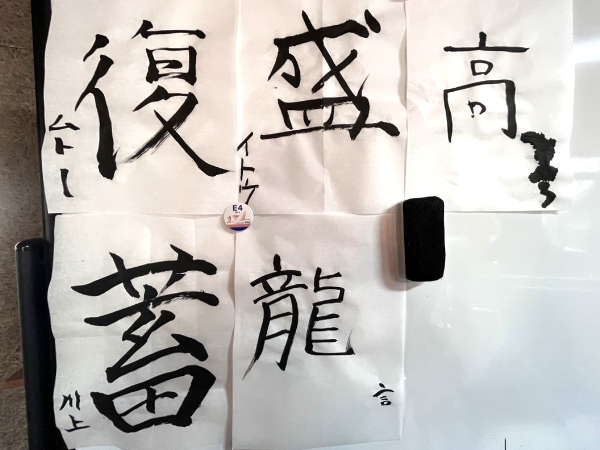 復
ムトー
盛
イトウ
高
E4
蓄
川上
龍
言